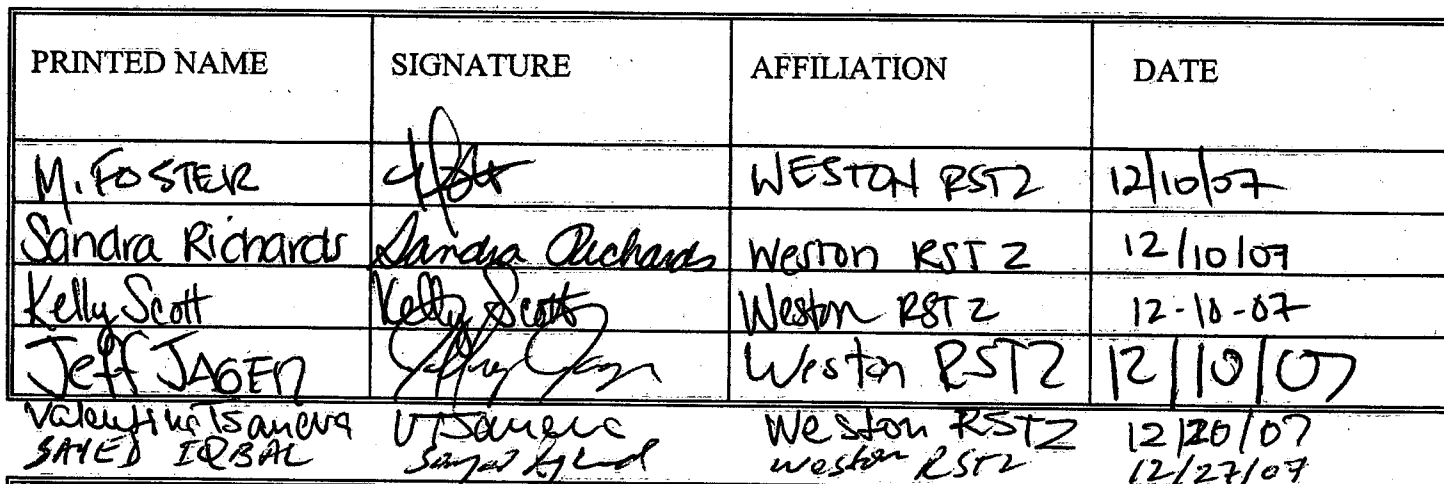 PRINTED NAME SIGNATURE AFFILIATION DATE
M. FOSTER WESTON RST2 12/10/07
Sandra Richards Sandra Richards Weston RST 2 12/10/07
Kelly Scott Kelly Scott Weston RST 2 12-10-07
Jeff JAGER Weston RST2 12/10/07
Valentina Tsaneva VTsaneva Weston RST2 12/20/07
SAYED IQBAL Weston RST2 12/27/07